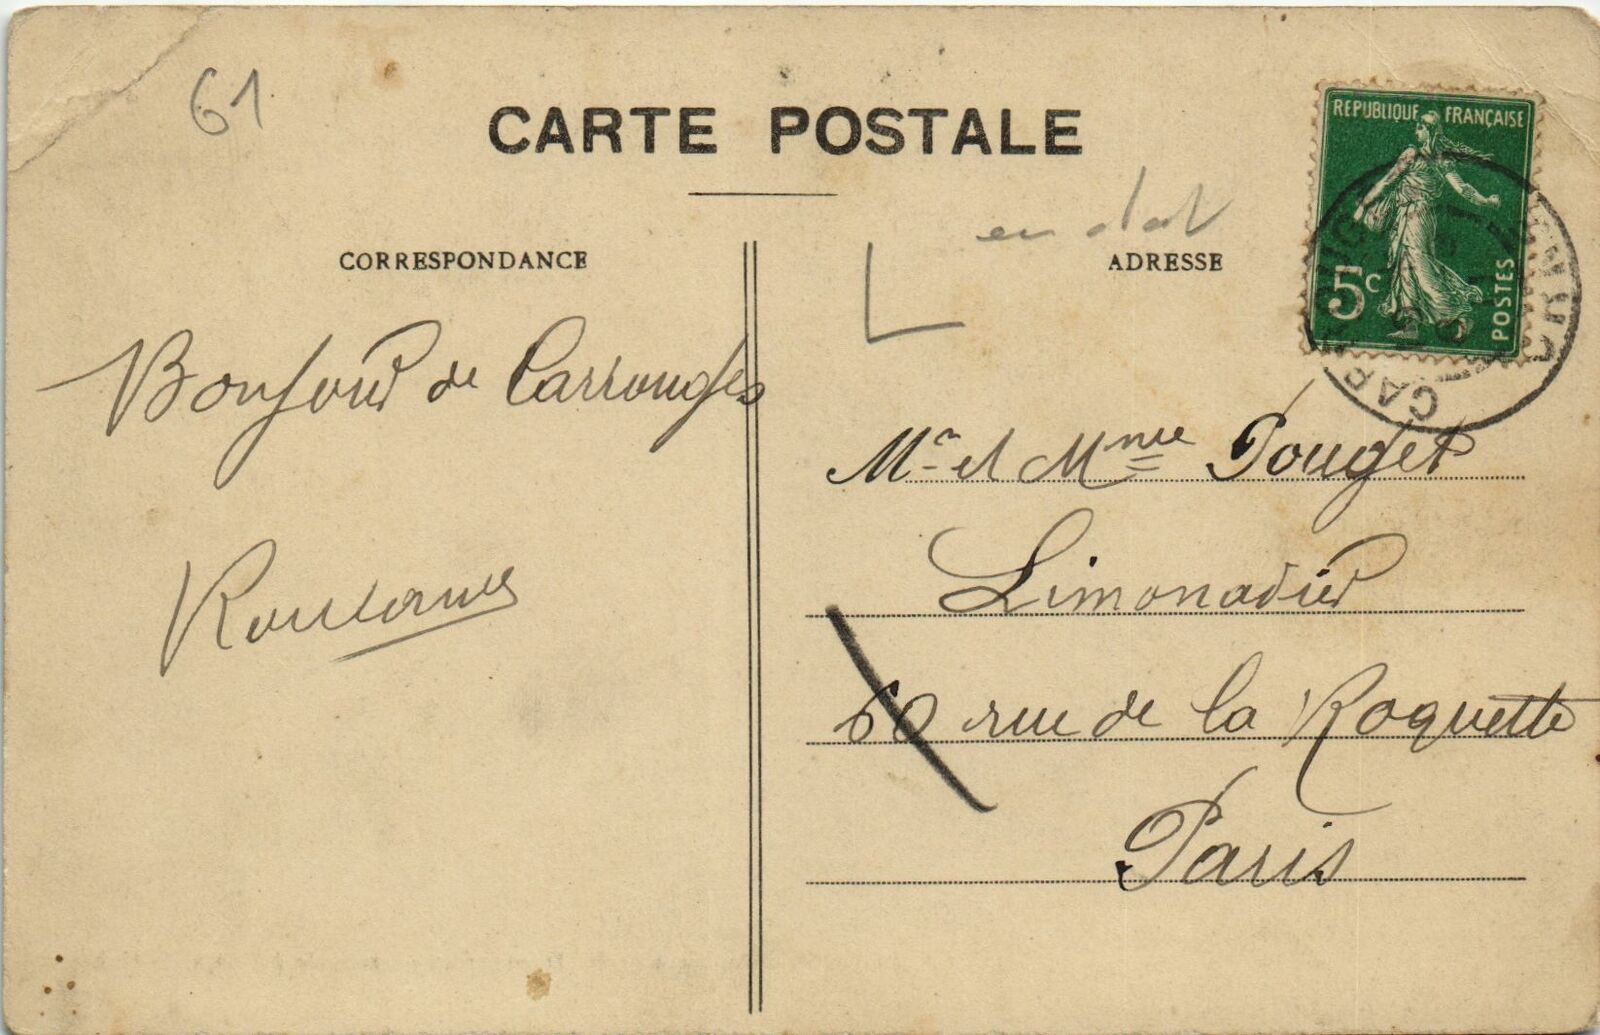 61
CARTE POSTALE
CORRESPONDANCE
Bonjour de Carrouges
ADRESSE
REPUBLIQUE FRANÇAISE
5c
POSTES
CARROUGES
Mr et Mme Pouget
Limonadier
60 rue de la Roquette
Paris